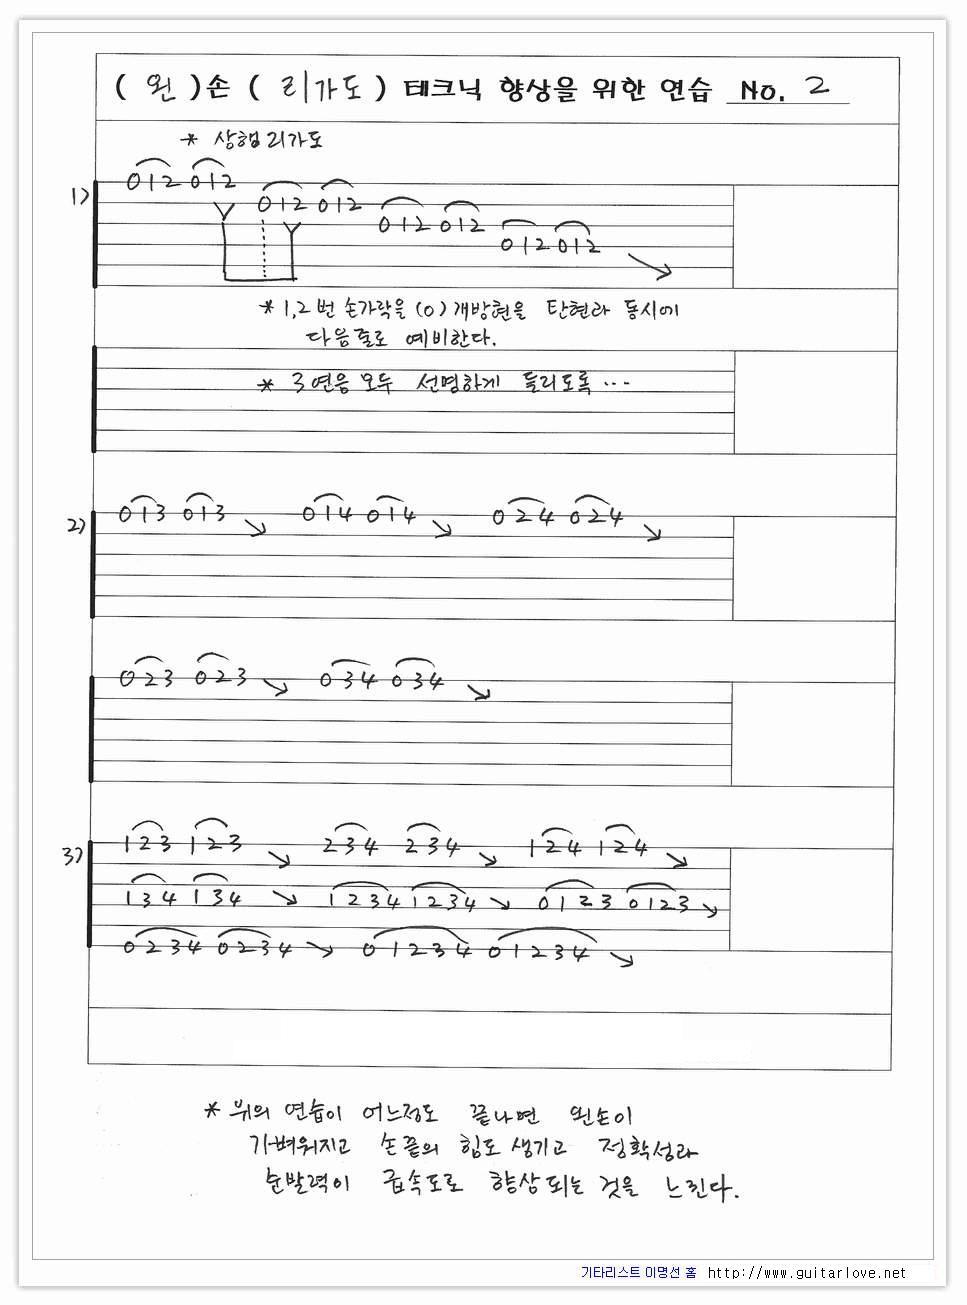 ( 왼 )손 ( 리가도 ) 테크닉 향상을 위한 연습 No. 2
* 상행 리가도
1) 012 012
012 012
012 012
012 012
* 1,2번 손가락을 (0) 개방현을 탄현과 동시에
다음줄로 예비한다.
* 3연음 모두 선명하게 들리도록 ...
2) 013 013 014 014 024 024
023 023 034 034
3) 123 123 234 234 124 124
134 134 1234 1234 0123 0123
0234 0234 01234 01234
* 위의 연습이 어느정도 끝나면 왼손이
가벼워지고 손끝의 힘도 생기고 정확성과
순발력이 급속도로 향상되는 것을 느낀다.
기타리스트 이명선 홈 http://www.guitarlove.net